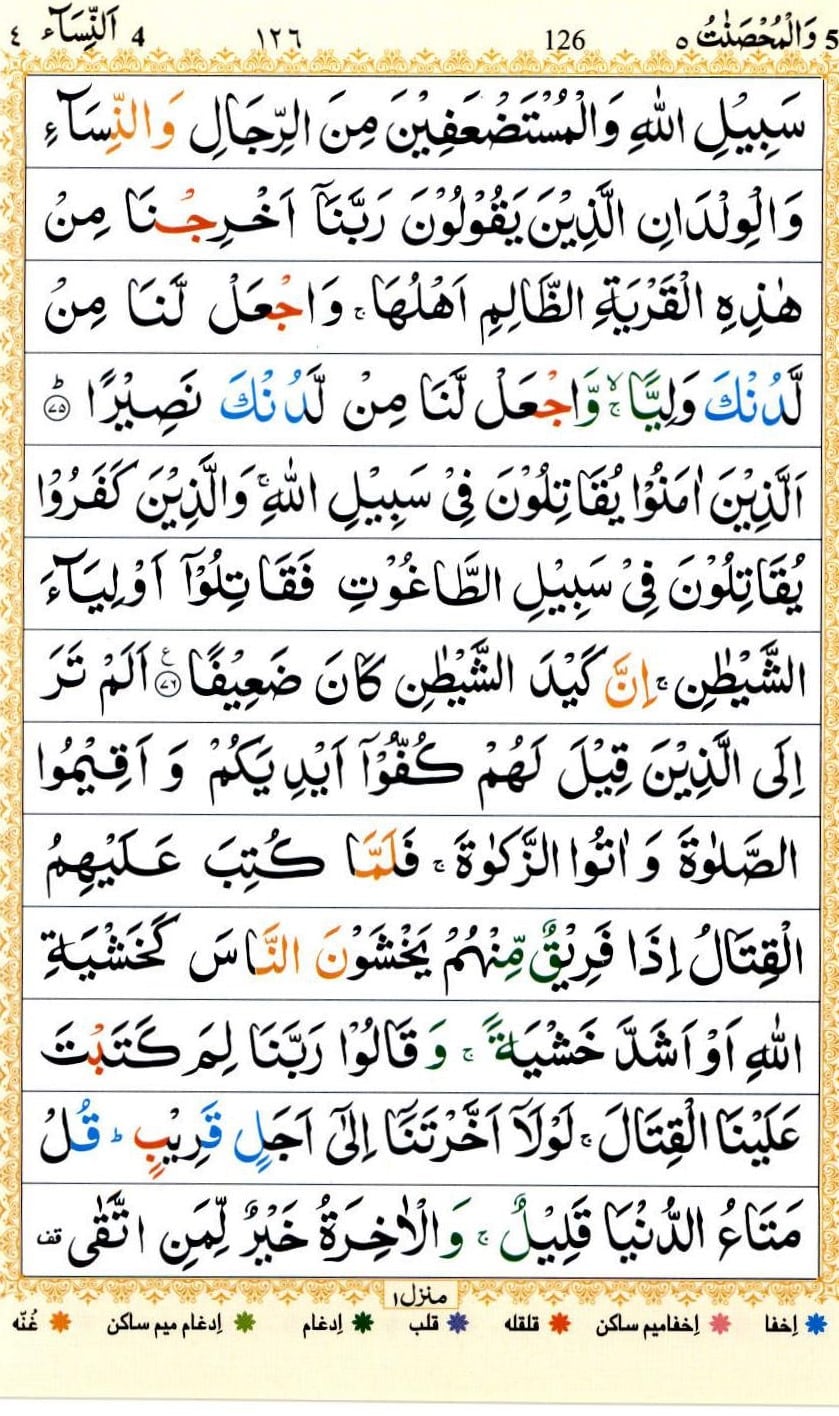 5 وَالْمُحْصَنٰتُ ٥ 126 ١٢٦ 4 اَلنِّسَآء ٤
سَبِيْلِ اللّٰهِ وَالْمُسْتَضْعَفِيْنَ مِنَ الرِّجَالِ وَالنِّسَآءِ
وَالْوِلْدَانِ الَّذِيْنَ يَقُوْلُوْنَ رَبَّنَاۤ اَخْرِجْنَا مِنْ
هٰذِهِ الْقَرْيَةِ الظَّالِمِ اَهْلُهَا ۚ وَاجْعَلْ لَّنَا مِنْ
لَّدُنْكَ وَلِيًّا ۙۚ وَّاجْعَلْ لَّنَا مِنْ لَّدُنْكَ نَصِيْرًا ؕ ﴿۷۵﴾
اَلَّذِيْنَ اٰمَنُوْا يُقَاتِلُوْنَ فِيْ سَبِيْلِ اللّٰهِ ۚ وَالَّذِيْنَ كَفَرُوْا
يُقَاتِلُوْنَ فِيْ سَبِيْلِ الطَّاغُوْتِ فَقَاتِلُوْۤا اَوْلِيَآءَ
الشَّيْطٰنِ ۚ اِنَّ كَيْدَ الشَّيْطٰنِ كَانَ ضَعِيْفًا ﴿۷۶﴾ ع اَلَمْ تَرَ
اِلَى الَّذِيْنَ قِيْلَ لَهُمْ كُفُّوْۤا اَيْدِيَكُمْ وَاَقِيْمُوا
الصَّلٰوةَ وَاٰتُوا الزَّكٰوةَ ۚ فَلَمَّا كُتِبَ عَلَيْهِمُ
الْقِتَالُ اِذَا فَرِيْقٌ مِّنْهُمْ يَخْشَوْنَ النَّاسَ كَخَشْيَةِ
اللّٰهِ اَوْ اَشَدَّ خَشْيَةً ۚ وَقَالُوْا رَبَّنَا لِمَ كَتَبْتَ
عَلَيْنَا الْقِتَالَ ۚ لَوْلَاۤ اَخَّرْتَنَاۤ اِلٰۤى اَجَلٍ قَرِيْبٍ ؕ قُلْ
مَتَاعُ الدُّنْيَا قَلِيْلٌ ۚ وَالْاٰخِرَةُ خَيْرٌ لِّمَنِ اتَّقٰى قف
منزل ١
اِخفا اِخفامیم ساکن قلقله قلب اِدغام اِدغام میم ساکن غُنّه